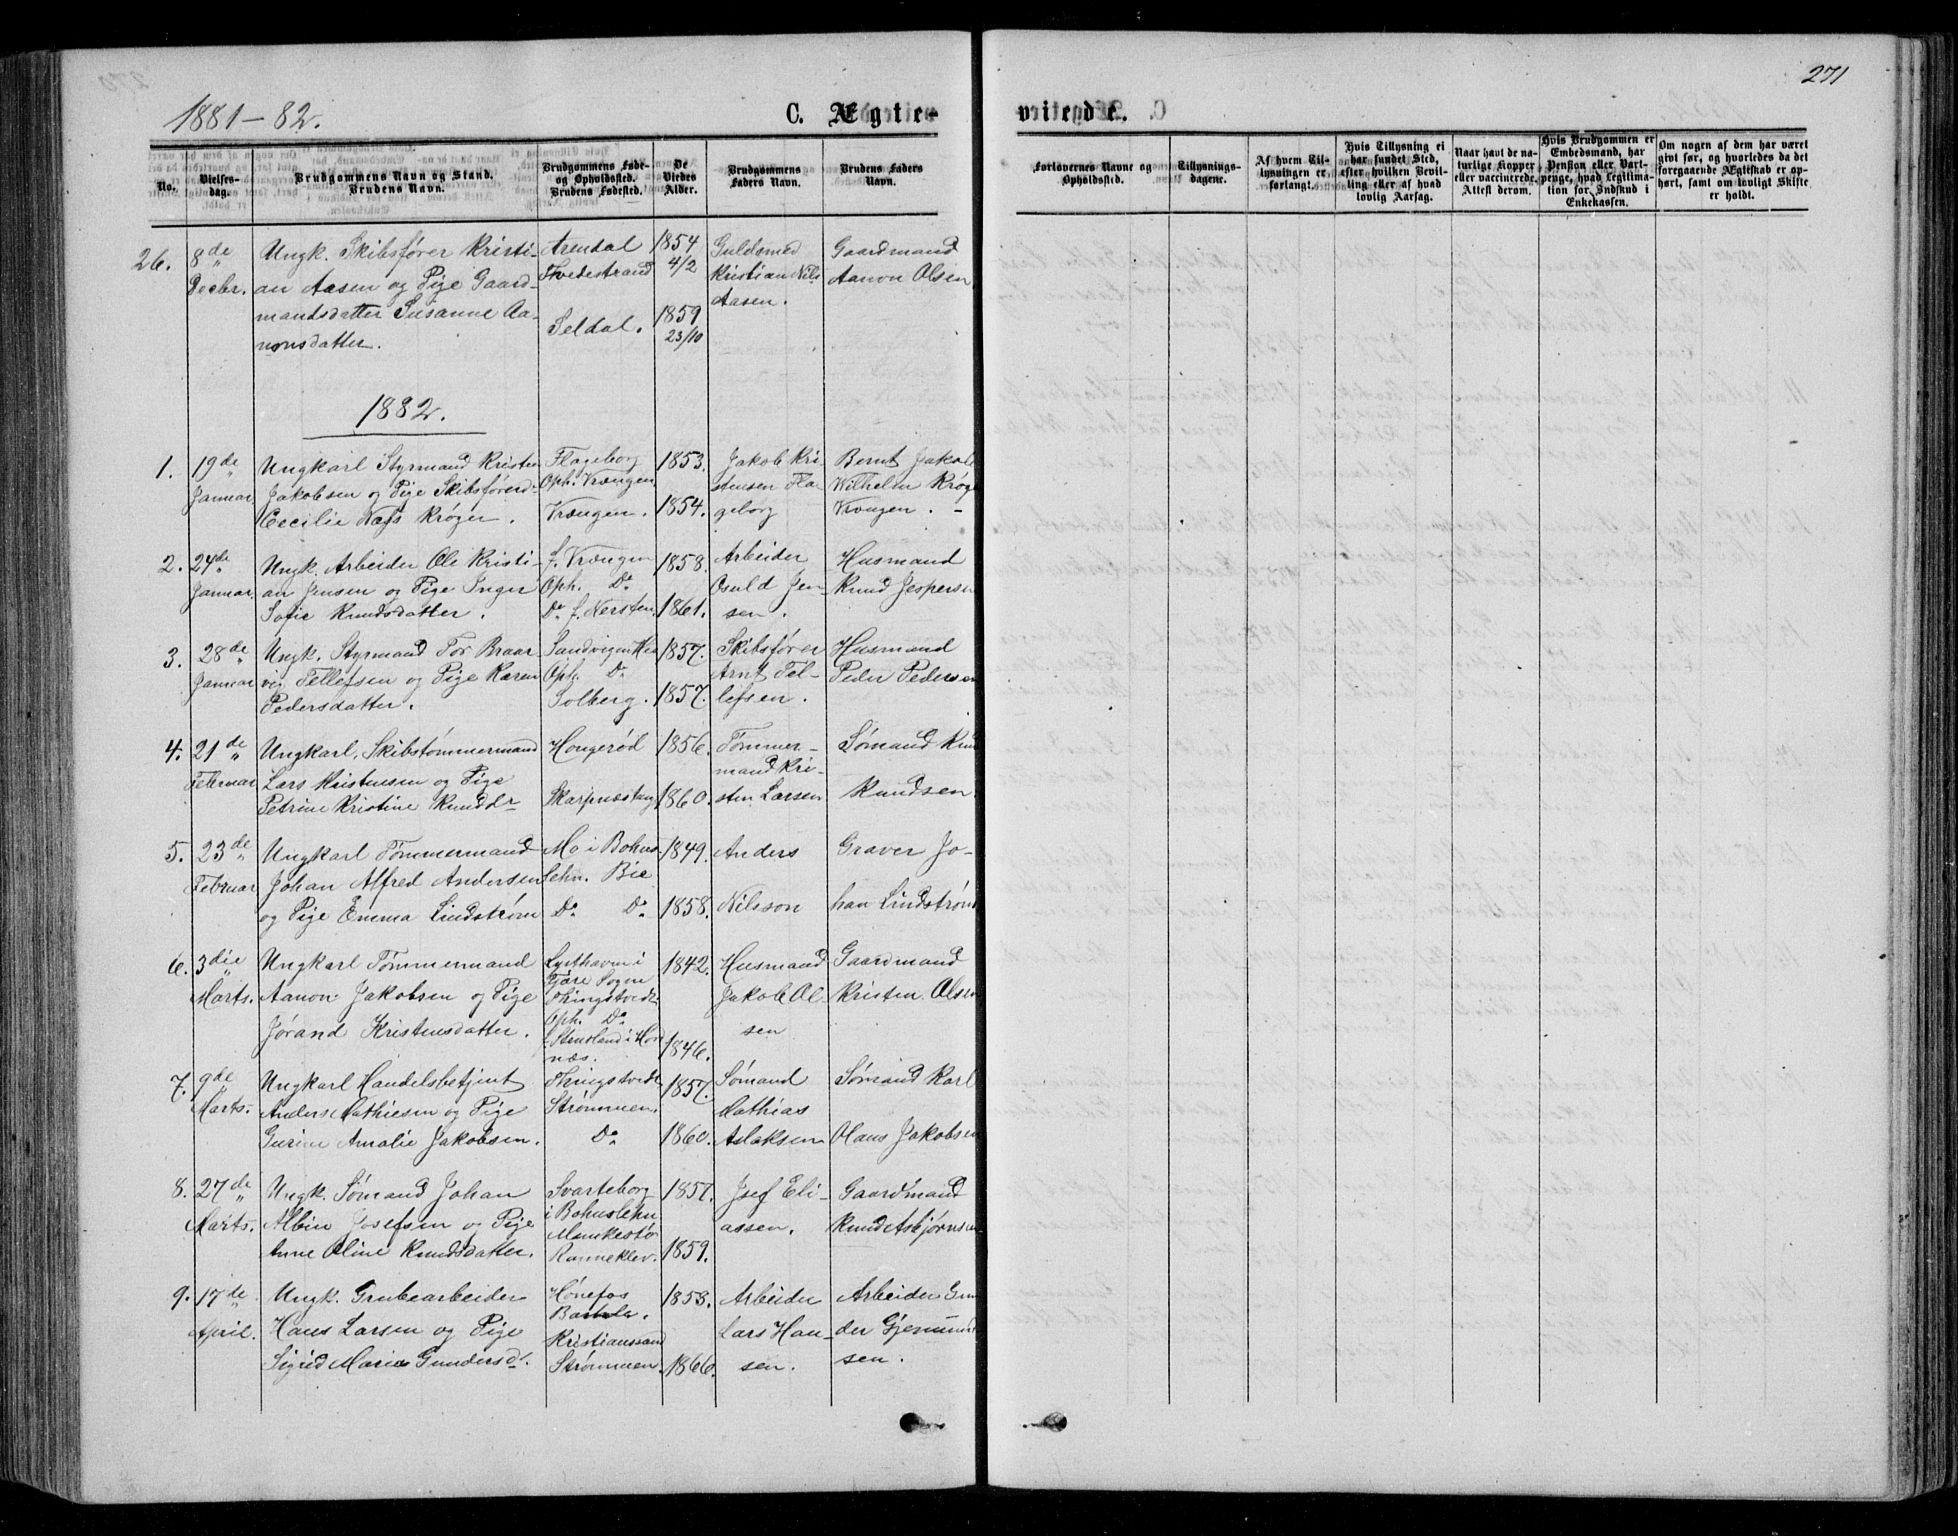 1881-82.
C. Ægte-
viede.
271
No.
Vielses-
dag.
Brudgommens Navn og Stand.
Brudens Navn.
Brudgommens Føde-
og Opholdssted.
Brudens Fødested.
De
Viedes
Alder.
Brudgommens
Faders Navn.
Brudens Faders
Navn.
Forlovernes Navne og
Opholdssted.
Tillysnings-
dagene.
Af hvem Til-
lysningen er
forlangt.
Hvis Tillysning ei
har fundet Sted,
efter hvilken Bevil-
ling eller af hvad
lovlig Aarsag.
Naar havt de na-
turlige Kopper
eller vaccinerede,
Attest derom.
Hvis Brudgommen er
Embedsmand, har
Pension eller Vart-
penge, hvad Legitima-
tion for Indskud i
Enkekassen.
Om nogen af dem har været
gift før, og hvorledes da det
foregaaende Ægteskab er op-
hørt, samt om lovligt Skifte
er holdt.
26.
8de
Decbr.
Ungk. Skibsfører Kristi-
an Aasen og Pige Gaard-
mandsdatter Susanne Aa-
nonsdatter.
Arendal
Tvedestrand
Seldal.
1854
4/2
1859
23/10
Guldsmed
Kristian Nils
Aasen.
Gaardmand
Aanon Olsen
1882.
1.
19de
Januar
Ungkarl Styrmand Kristen
Jakobsen og Pige Skibsførerd.
Cecilie Næss Krøger.
Flageborg
Oph. Vrængen
Vrængen.
1853.
1854.
Jakob Kri
stensen Fla
geborg
Bernt Jakob
Wilhelm Krøge
Vrengen.
2.
24de
Januar
Ungk. Arbeider Ole Kristi-
an Jensen og Pige Inger
Sofie Knudsdatter.
f. Vrængen
Oph. Do
Do f. Nersten.
1858.
1861.
Arbeider
Osuld Jen-
sen.
Husmand
Knud Jespersen
3.
28de
Januar
Ungk. Styrmand Tor Braar
vig Tellefsen og Pige Karen
Pedersdatter.
Sandvigen His
Oph. Do
Solberg.
1857.
1857.
Skibsfører
Arnt Tel-
lefsen.
Husmand
Peder Pedersen
4.
21de
Februar
Ungkarl, Skibstømmermand
Lars Kristensen og Pige
Petrine Kristine Knudsdr
Hongerød
Skarpnæstang
1856.
1860.
Tømmer-
mand Kri-
sten Larsen
Sømand Knu
Knudsen
5.
23de
Februar
Ungkarl Tømmermand
Johan Alfred Andersen
og Pige Emma Lindstrøm
Mo i Bohus
Lehn. Bie
Do Do
1849.
1858.
Anders
Nilsson
Graver Jo-
han Lindstrøm
6.
3die
Marts.
Ungkarl Tømmermand
Aanon Jakobsen og Pige
Jørand Kristensdatter.
Lysthaven i
Fjære Sogn
Thingstvedt
Oph. Do
f. Stensland i Hor
næs.
1842.
1846.
Husmand
Jakob Ol-
sen
Gaardmand
Kristen Olsen
7.
9de
Marts.
Ungkarl Handelsbetjent
Anders Mathiesen og Pige
Gurine Amalie Jakobsen.
Thingstvedt
Strømmen.
Do
1857.
1860.
Sømand
Mathias
Aslaksen
Sømand Karl
Olaus Jakobsen
8.
27de
Marts.
Ungk. Sømand Johan
Albin Josefsen og Pige
Anne Oline Knudsdatter.
Svarteborg
i Bohuslehn
Munkestø
Ranneklev.
1857.
1859.
Josef Eli-
assen.
Gaardmand
Knud Asbjørnsen
9.
17de
April.
Ungk. Grubearbeider
Hans Larsen og Pige
Sigrid Marie Gundersdr.
Hønefos
Kristianssand
Strømmen.
1858.
1866.
Arbeider
Lars Han-
sen.
Arbeider Gun
der Gjemund
sen.